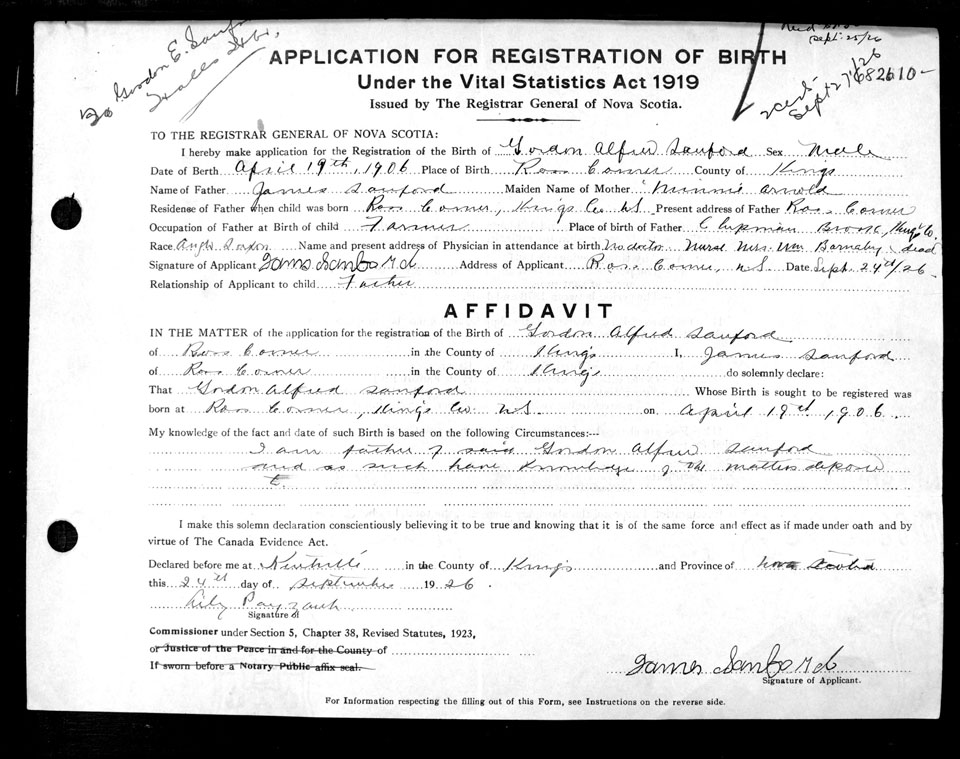 To Gordon E. Sanford
Recd
Sept. 25/26
2 certs
Sept 27/26
682610-
APPLICATION FOR REGISTRATION OF BIRTH
Under the Vital Statistics Act 1919
Issued by The Registrar General of Nova Scotia.
TO THE REGISTRAR GENERAL OF NOVA SCOTIA:
I hereby make application for the Registration of the Birth of Gordon Alfred Sanford Sex Male
Date of Birth April 19th, 1906 Place of Birth Ross Corner County of Kings
Name of Father James Sanford Maiden Name of Mother Minnie Arnold
Residense of Father when child was born Ross Corner, Kings Co. NS Present address of Father Ross Corner
Occupation of Father at Birth of child Farmer Place of birth of Father Chipman Brook, Kings Co.
Race Anglo Saxon Name and present address of Physician in attendance at birth No doctor Nurse Mrs. Wm. Barnaby, dead
Signature of Applicant James Sanford Address of Applicant Ross Corner, NS Date Sept. 24th/26
Relationship of Applicant to child Father
AFFIDAVIT
IN THE MATTER of the application for the registration of the Birth of Gordon Alfred Sanford
of Ross Corner in the County of Kings I, James Sanford
of Ross Corner in the County of Kings do solemnly declare:
That Gordon Alfred Sanford Whose Birth is sought to be registered was
born at Ross Corner, Kings Co. NS. on April 19th 1906.
My knowledge of the fact and date of such Birth is based on the following Circumstances:--
I am father of said Gordon Alfred Sanford
and as such have knowledge of the matters deposed
to.
I make this solemn declaration conscientiously believing it to be true and knowing that it is of the same force and effect as if made under oath and by
virtue of The Canada Evidence Act.
Declared before me at Kentville in the County of Kings and Province of Nova Scotia
this 24th day of September 1926.
Signature of
Commissioner under Section 5, Chapter 38, Revised Statutes, 1923,
or Justice of the Peace in and for the County of
If sworn before a Notary Public affix seal.
James Sanford
Signature of Applicant.
For Information respecting the filling out of this Form, see Instructions on the reverse side.